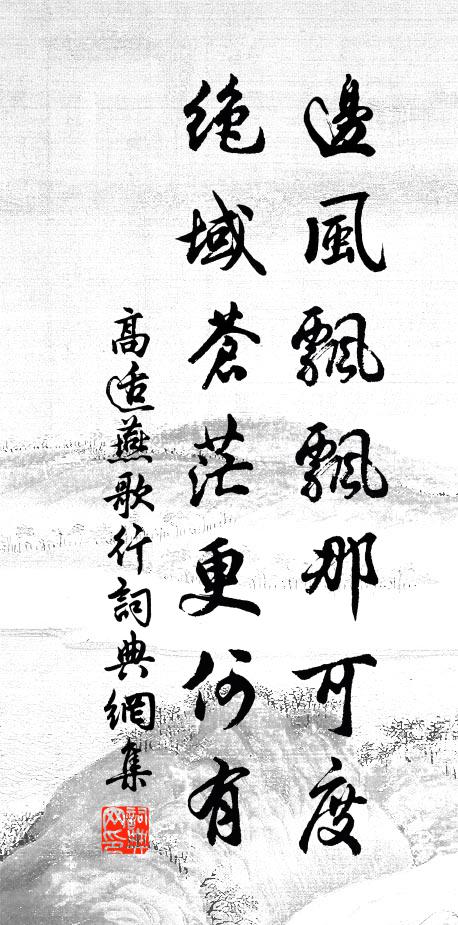 邊風飄飄那可度
絶域蒼茫更何有
高適燕歌行詞典網集